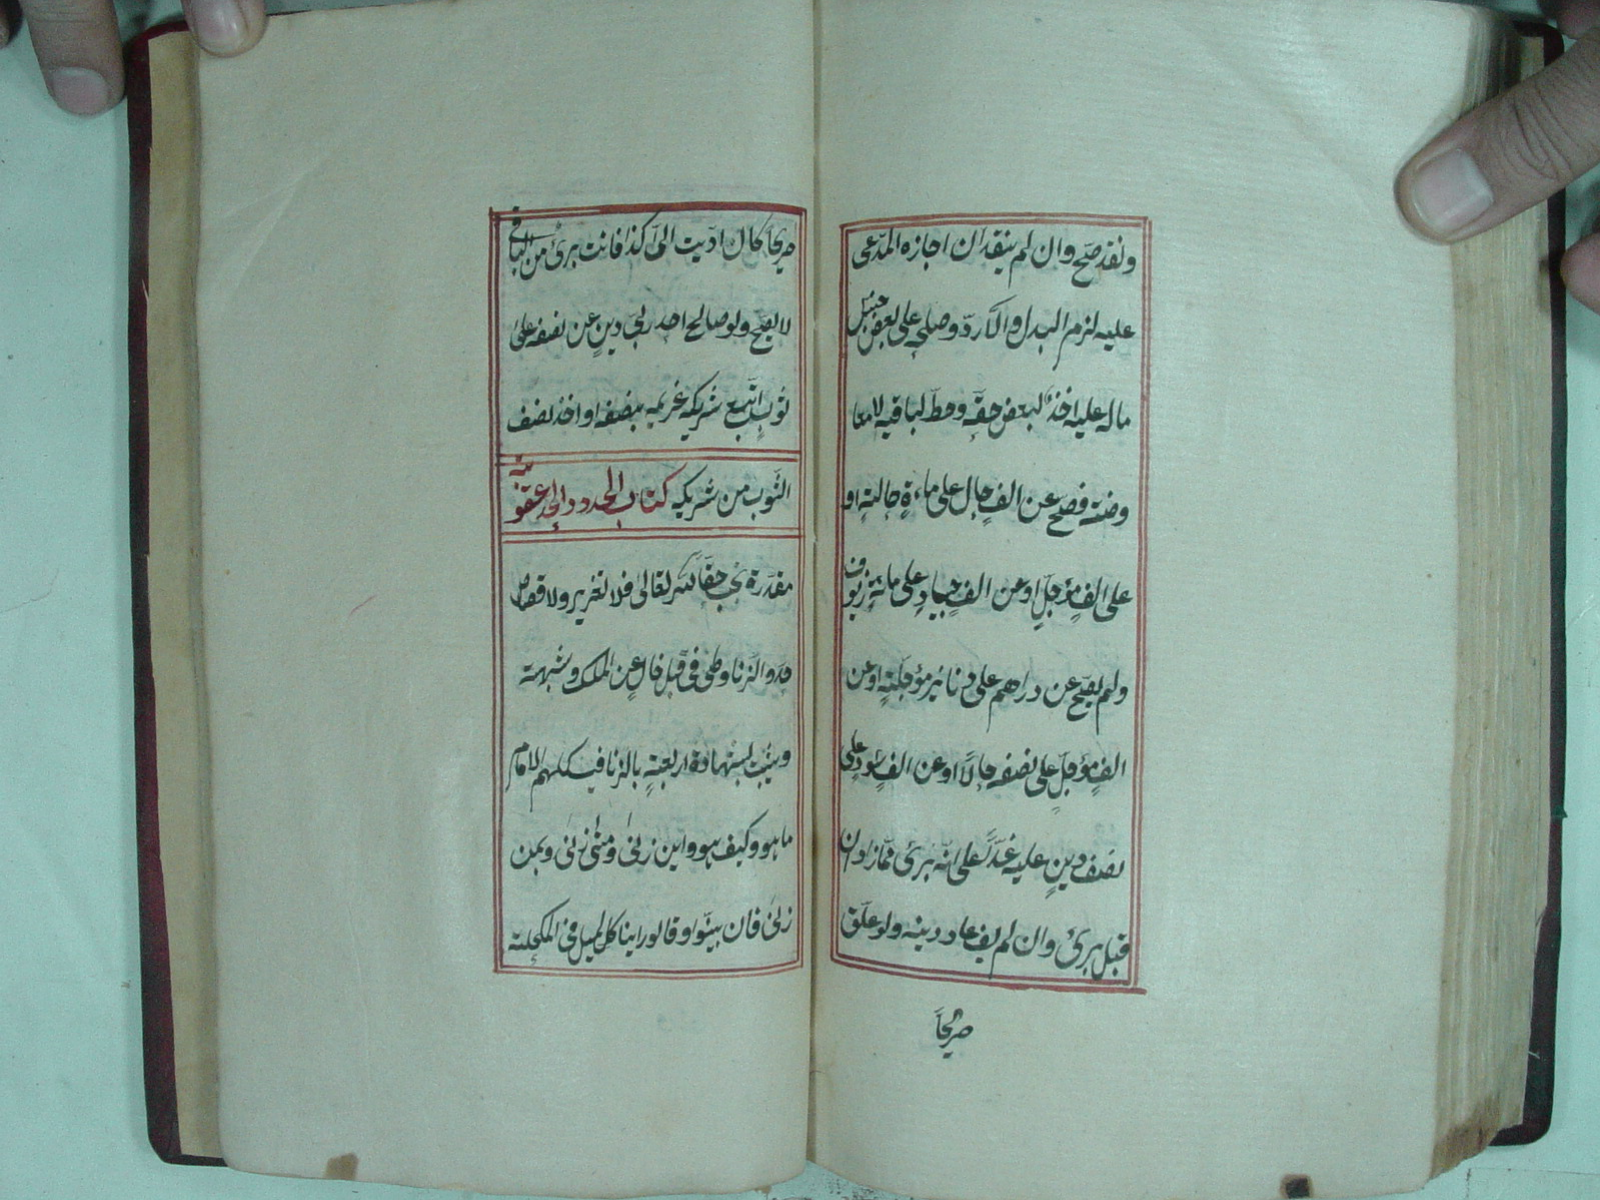 ونقد صح وان لم ينقد ان اجازه المدعى
عليه لزم البدل والا رد وصلحه على بعض جنس
ماله عليه اخذ لبعض حقه وحط لباقيه لا معا
وضة فصح عن الف حال على ماءة حالة او
على الف مؤجل او عن الف جياد على مائة زيوف
ولم يصح عن دراهم على دنانير مؤجلة او عن
الف مؤجل على نصفه حالا او عن الف سود على
نصف دين عليه غدا على انه برئ مما زاد ان
قبل برئ وان لم يف عاد دينه ولو علق
صريحاً
صريحاً كان اديت الىّ كذا فانت برئ من الباقى
لا يصح ولو صالح احد ربى دين عن نصفه على
ثوب اتبع شريكه غريمه بنصفه او اخذ نصف
الثوب من شريكه كتاب الحدود الحد عقوبة
مقدرة تجب حقا لله تعالى فلا تعزير ولا قصاص
حد والزنا وطئ فى قبل خال عن الملك وشبهته
ويثبت بشهادة اربعة بالزنا فيسئلهم الامام
ما هو وكيف هو واين زنى ومتى زنى وبمن
زنى فان بينوا وقالوا راينا كالميل فى المكحلة